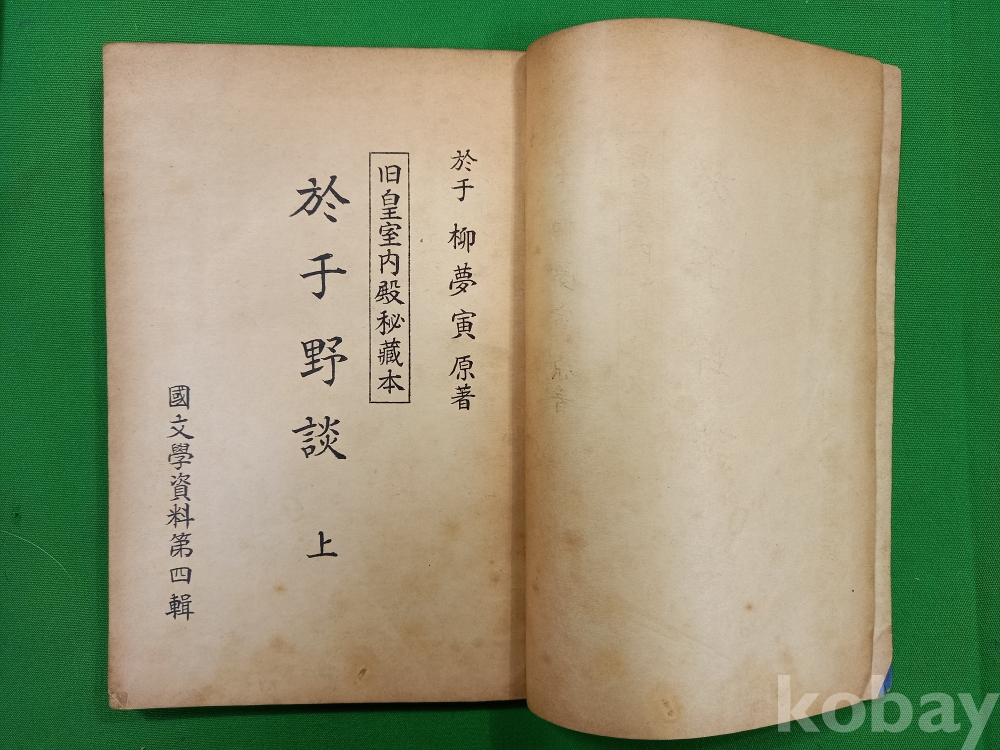 於于 柳夢寅 原著
旧皇室内殿秘藏本
於于野談 上
國文學資料第四輯
kobay